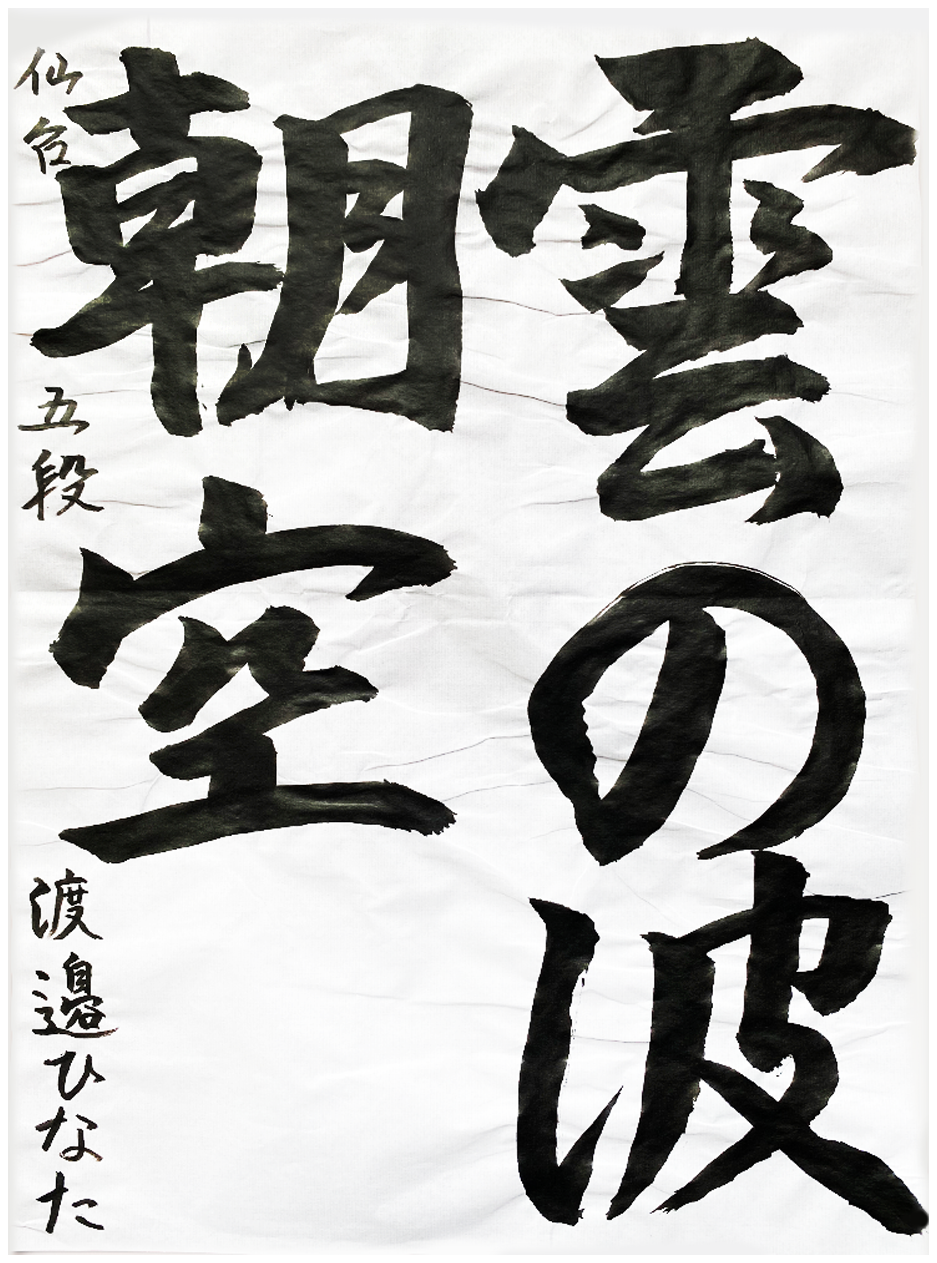 雲の波
朝空
仙台 五段 渡邉ひなた